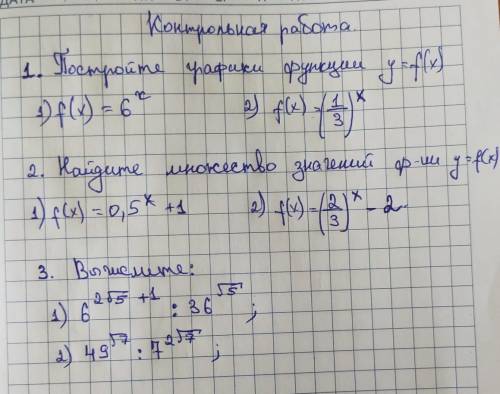 Контрольная работа.
1. Постройте графики функции y=f(x)
1) f(x) = 6^x 2) f(x) = (1/3)^x
2. Найдите множество значений ф-ии y=f(x)
1) f(x) = 0,5^x + 1 2) f(x) = (2/3)^x - 2
3. Вычислите:
1) 6^(2√5 + 1) : 36^√5 ;
2) 49^√7 : 7^(2√7) ;